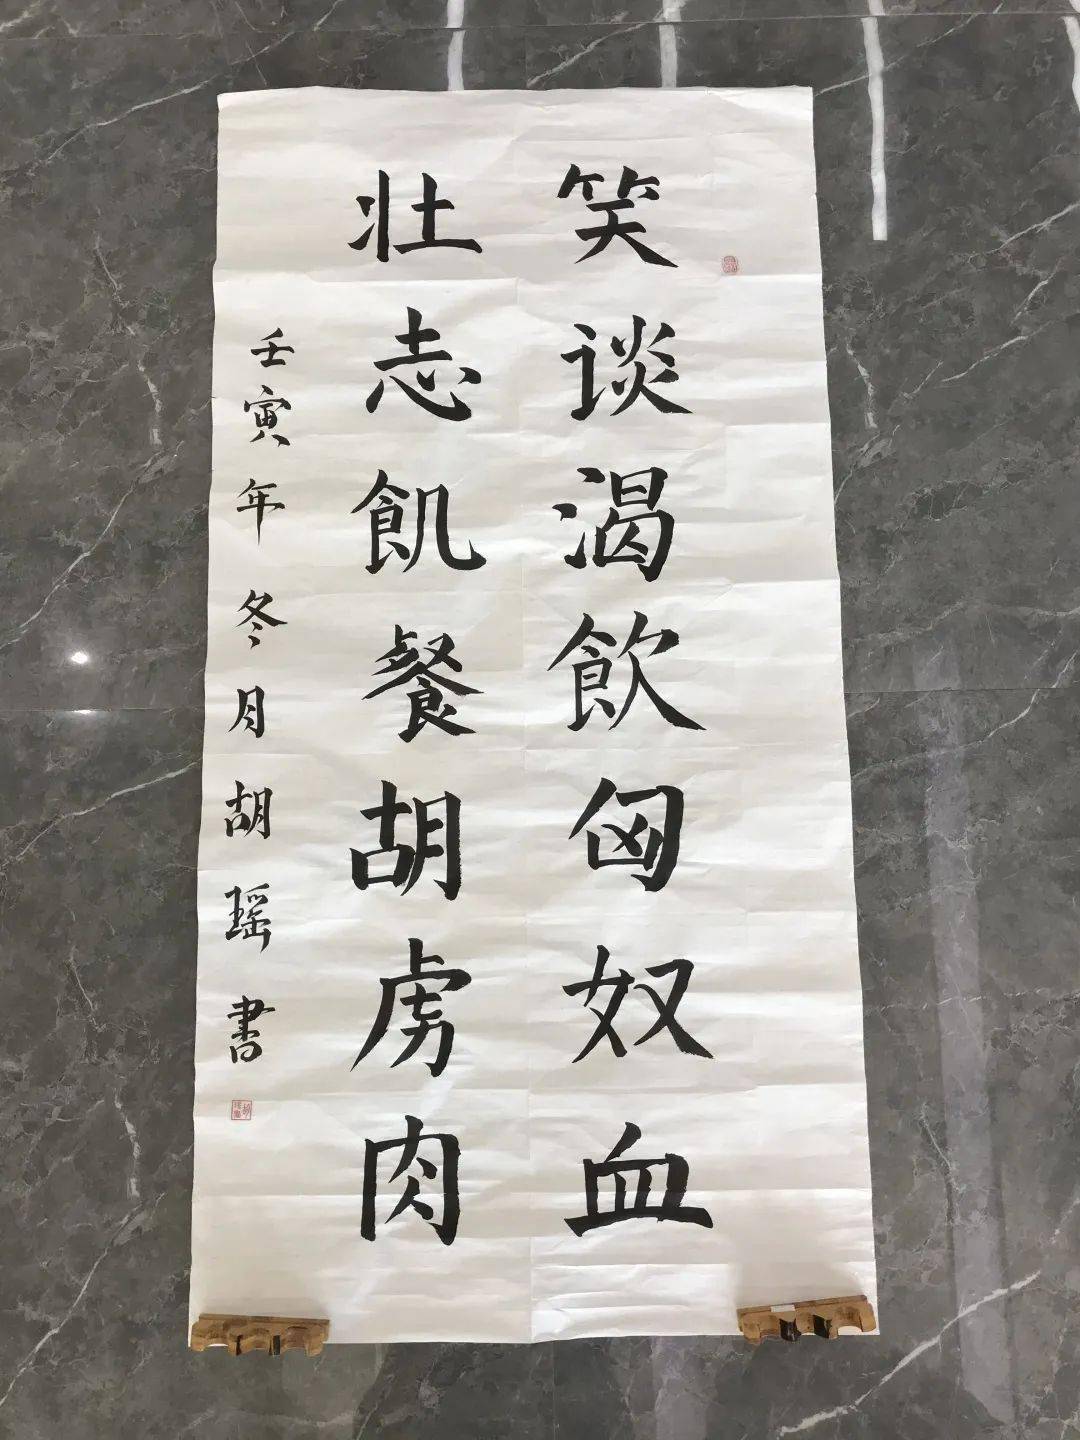 笑谈渴飲匈奴血
壮志飢餐胡虏肉
壬寅年冬月胡瑶書